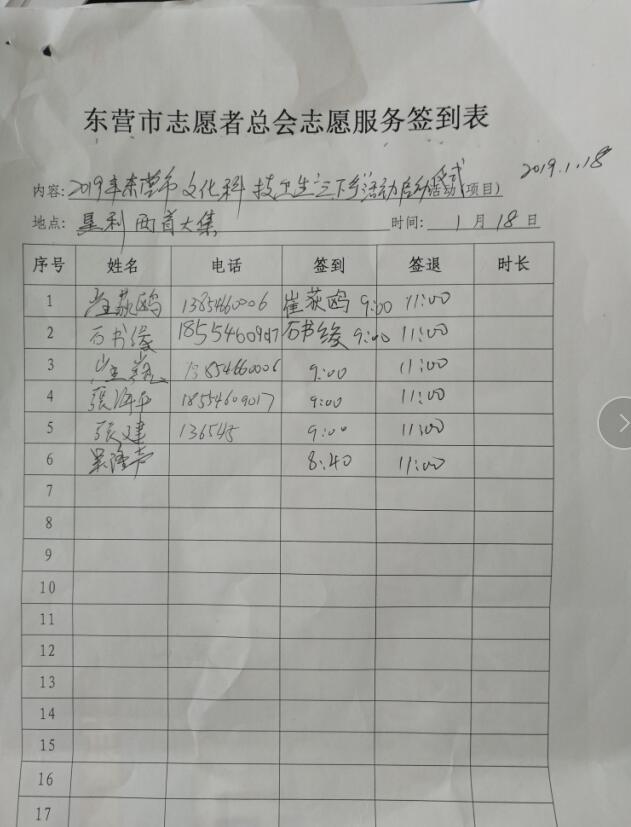 东营市志愿者总会志愿服务签到表
2019.1.18
内容:2019年东营市文化科技卫生三下乡活动启动仪式活动(项目)
地点:垦利西首大集 时间: 1月18日
序号 姓名 电话 签到 签退 时长
1 崔荻鸥 13854660006 崔荻鸥 9:00 11:00
2 石书缘 18554609017 石书缘 9:00 11:00
3 13854660006 9:00 11:00
4 18554609017 9:00 11:00
5 张建 136545 9:00 11:00
6 8:40 11:00
7
8
9
10
11
12
13
14
15
16
17